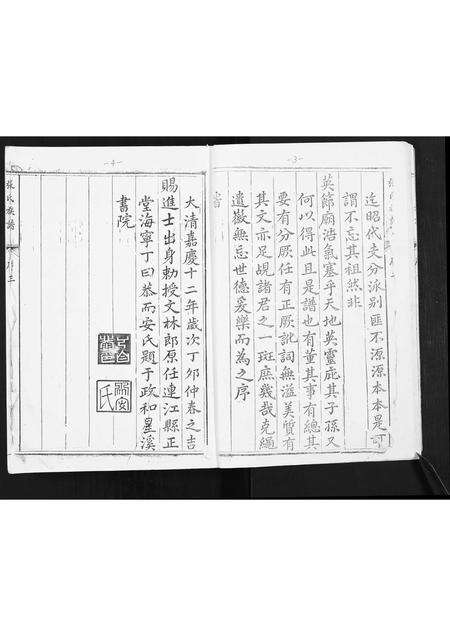 -3-
迄昭代支分泒別匪不源源本本是可
謂不忘其祖然非
英飾廟浩氣塞乎天地英靈庇其子孫又
何以得此且是譜也有董其事有總其
要有分厥任有正厥訛詞無溢美質有
其文亦足覘諸君之一斑庶幾哉克繩
遺徽無忘世德爰樂而為之序
-4-
大清嘉慶十二年歲次丁夘仲春之吉
賜進士出身勅授文林郎原任連江縣正
堂海寧丁曰恭而安氏題于政和星溪
書院
而安
氏
張氏族譜
序三